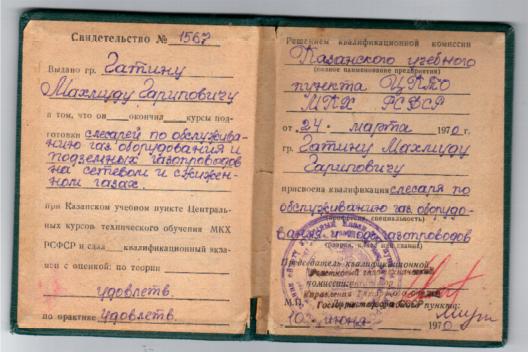 Свидетельство № 1567
Выдано гр. Гатину
Махмуду Гариповичу
в том, что он окончил курсы под-
готовки слесарей по обслужива-
нию газ. оборудования и
подземных газопроводов
на сетевом и сжижен-
ном газах.
при Казанском учебном пункте Централь-
ных курсов технического обучения МКХ
РСФСР и сдал квалификационный экза-
мен с оценкой: по теории
удовлетв.
по практике удовлетв.
Решением квалификационной комиссии
Казанского учебного
(полное наименование предприятия)
пункта ЦКТО
МКХ РСФСР
от 24 марта 1970 г.
гр. Гатину Махмуду
Гариповичу
присвоена квалификация слесаря по
обслуживанию газ. оборудо-
(профессия, специальность)
вания и подз. газопроводов
(разряд, класс или звание)
Председатель квалификационной
комиссии
М.П.
пункта:
10 июня 1970 г.